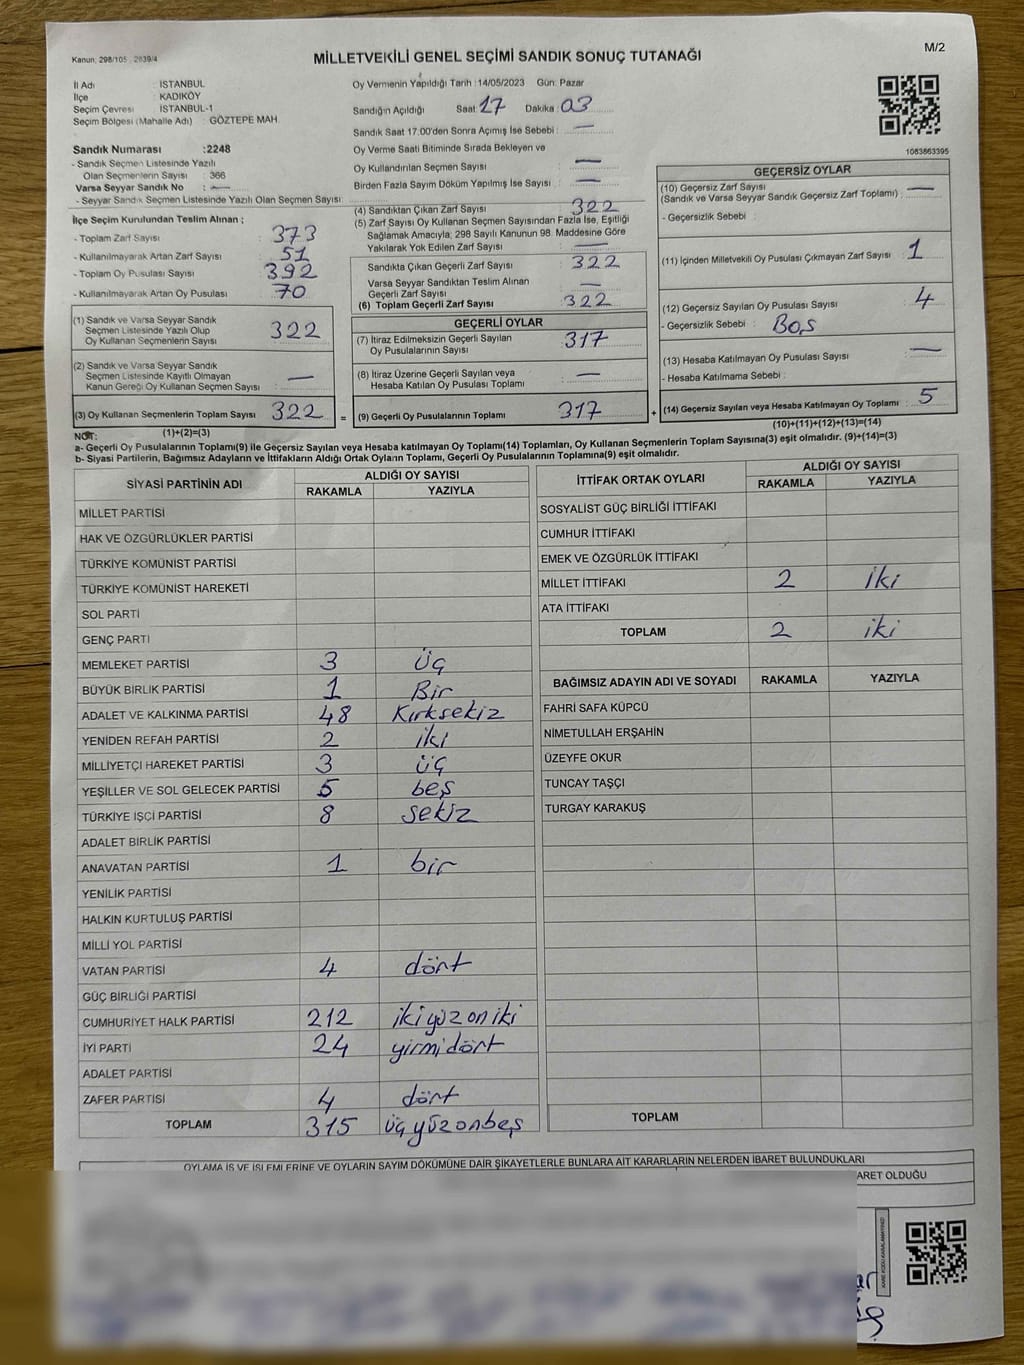 Kanun; 298/105 , 2839/4
MİLLETVEKİLİ GENEL SEÇİMİ SANDIK SONUÇ TUTANAĞI
M/2
İl Adı : İSTANBUL
İlçe : KADIKÖY
Seçim Çevresi : İSTANBUL-1
Seçim Bölgesi (Mahalle Adı) : GÖZTEPE MAH.
Sandık Numarası :2248
- Sandık Seçmen Listesinde Yazılı
Olan Seçmenlerin Sayısı : 366
Varsa Seyyar Sandık No : —
- Seyyar Sandık Seçmen Listesinde Yazılı Olan Seçmen Sayısı:
Oy Vermenin Yapıldığı Tarih :14/05/2023 Gün: Pazar
Sandığın Açıldığı Saat: 17 Dakika : 03
Sandık Saat 17:00'den Sonra Açımış İse Sebebi : —
Oy Verme Saati Bitiminde Sırada Bekleyen ve
Oy Kullandırılan Seçmen Sayısı —
Birden Fazla Sayım Döküm Yapılmış İse Sayısı : —
1083863395
İlçe Seçim Kurulundan Teslim Alınan ;
- Toplam Zarf Sayısı : 373
- Kullanılmayarak Artan Zarf Sayısı : 51
- Toplam Oy Pusulası Sayısı : 392
- Kullanılmayarak Artan Oy Pusulası : 70
(1) Sandık ve Varsa Seyyar Sandık
Seçmen Listesinde Yazılı Olup
Oy Kullanan Seçmenlerin Sayısı : 322
(2) Sandık ve Varsa Seyyar Sandık
Seçmen Listesinde Kayıtlı Olmayan
Kanun Gereği Oy Kullanan Seçmen Sayısı : —
(3) Oy Kullanan Seçmenlerin Toplam Sayısı : 322
(1)+(2)=(3)
(4) Sandıktan Çıkan Zarf Sayısı : 322
(5) Zarf Sayısı Oy Kullanan Seçmen Sayısından Fazla İse, Eşitliği
Sağlamak Amacıyla; 298 Sayılı Kanunun 98. Maddesine Göre
Yakılarak Yok Edilen Zarf Sayısı : —
Sandıkta Çıkan Geçerli Zarf Sayısı : 322
Varsa Seyyar Sandıktan Teslim Alınan
Geçerli Zarf Sayısı :
(6) Toplam Geçerli Zarf Sayısı : 322
GEÇERLİ OYLAR
(7) İtiraz Edilmeksizin Geçerli Sayılan
Oy Pusulalarının Sayısı : 317
(8) İtiraz Üzerine Geçerli Sayılan veya
Hesaba Katılan Oy Pusulası Toplamı : —
= (9) Geçerli Oy Pusulalarının Toplamı : 317
GEÇERSİZ OYLAR
(10) Geçersiz Zarf Sayısı
(Sandık ve Varsa Seyyar Sandık Geçersiz Zarf Toplamı) : —
- Geçersizlik Sebebi :
(11) İçinden Milletvekili Oy Pusulası Çıkmayan Zarf Sayısı : 1
(12) Geçersiz Sayılan Oy Pusulası Sayısı : 4
- Geçersizlik Sebebi : Boş
(13) Hesaba Katılmayan Oy Pusulası Sayısı : —
- Hesaba Katılmama Sebebi :
+ (14) Geçersiz Sayılan veya Hesaba Katılmayan Oy Toplamı : 5
(10)+(11)+(12)+(13)=(14)
NOT:
a- Geçerli Oy Pusulalarının Toplamı(9) ile Geçersiz Sayılan veya Hesap katılmayan Oy Toplamı(14) Toplamları, Oy Kullanan Seçmenlerin Toplam Sayısına(3) eşit olmalıdır. (9)+(14)=(3)
b- Siyasi Partilerin, Bağımsız Adayların ve İttifakların Aldığı Ortak Oyların Toplamı, Geçerli Oy Pusulalarının Toplamına(9) eşit olmalıdır.
SİYASİ PARTİNİN ADI ALDIĞI OY SAYISI
RAKAMLA YAZIYLA
MİLLET PARTİSİ
HAK VE ÖZGÜRLÜKLER PARTİSİ
TÜRKİYE KOMÜNİST PARTİSİ
TÜRKİYE KOMÜNİST HAREKETİ
SOL PARTİ
GENÇ PARTİ
MEMLEKET PARTİSİ 3 üç
BÜYÜK BİRLİK PARTİSİ 1 Bir
ADALET VE KALKINMA PARTİSİ 48 Kırksekiz
YENİDEN REFAH PARTİSİ 2 iki
MİLLİYETÇİ HAREKET PARTİSİ 3 üç
YEŞİLLER VE SOL GELECEK PARTİSİ 5 beş
TÜRKİYE İŞÇİ PARTİSİ 8 sekiz
ADALET BİRLİK PARTİSİ
ANAVATAN PARTİSİ 1 bir
YENİLİK PARTİSİ
HALKIN KURTULUŞ PARTİSİ
MİLLİ YOL PARTİSİ
VATAN PARTİSİ 4 dört
GÜÇ BİRLİĞİ PARTİSİ
CUMHURİYET HALK PARTİSİ 212 ikiyüz on iki
İYİ PARTİ 24 yirmidört
ADALET PARTİSİ
ZAFER PARTİSİ 4 dört
TOPLAM 315 üçyüzonbeş
İTTİFAK ORTAK OYLARI ALDIĞI OY SAYISI
RAKAMLA YAZIYLA
SOSYALİST GÜÇ BİRLİĞİ İTTİFAKI
CUMHUR İTTİFAKI
EMEK VE ÖZGÜRLÜK İTTİFAKI
MİLLET İTTİFAKI 2 iki
ATA İTTİFAKI
TOPLAM 2 iki
BAĞIMSIZ ADAYIN ADI VE SOYADI RAKAMLA YAZIYLA
FAHRİ SAFA KÜPCÜ
NİMETULLAH ERŞAHİN
ÜZEYFE OKUR
TUNCAY TAŞÇI
TURGAY KARAKUŞ
TOPLAM
OYLAMA İŞ VE İŞLEMLERİNE VE OYLARIN SAYIM DÖKÜMÜNE DAİR ŞİKAYETLERLE BUNLARA AİT KARARLARIN NELERDEN İBARET BULUNDUKLARI
ARET OLDUĞU